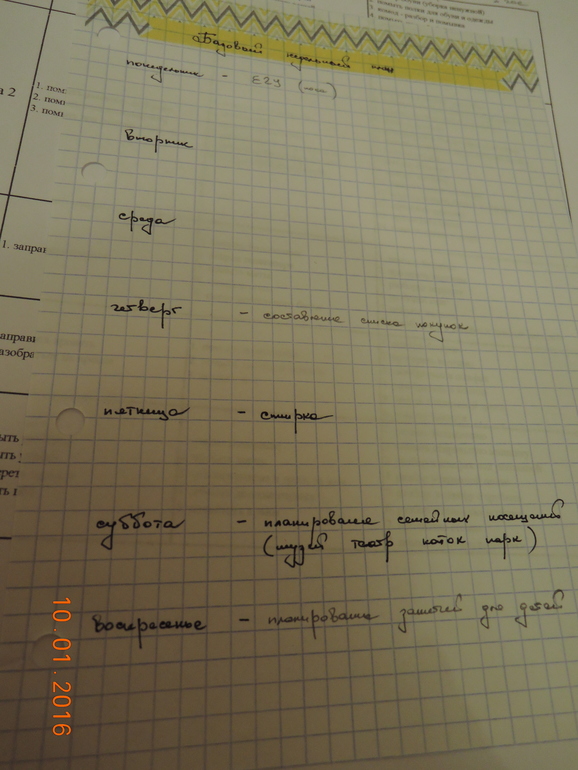 Базовый недельный план
понедельник - ЕЗУ
вторник
среда
четверг - составление списка покупок
пятница - стирка
суббота - планирование семейных посещений
(музей театр каток парк)
воскресенье - планирование занятий для детей
а 2
1. пом
2. пом
3. пом
1. заправ
аправи
азобра
ыть
ыть
ерет
10.01.2016